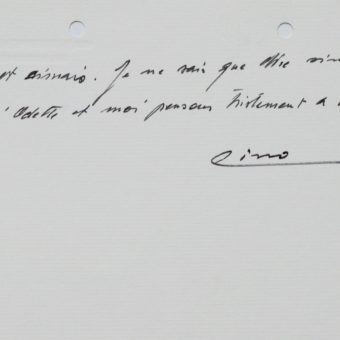 et aimais. Je ne sais que dire
Odette et moi pensons tristement a
Cino